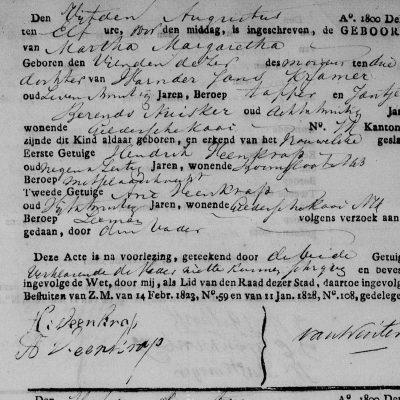 Den Vijfden Augustus A°. 1800 De
ten Elf ure, voor den middag, is ingeschreven, de GEBOOR
van Martha Margaretha
Geboren den Vierden dezer des morgens ten drie
dochter van Harmder Jans Kramer
oud Jaren, Beroep Tapper en Jantje
Berends Muisker oud Achtentwintig Jar
wonende Geldersche kaai N°. 74 Kanton
zijnde dit Kind aldaar geboren, en erkend van het Vrouwelijke gesla
Eerste Getuige Hendrik Veenkrap
oud Negen en dertig Jaren, wonende
Beroep
Tweede Getuige Veenkrap
oud Jaren, wonende Geldersche kaai N 74
Beroep volgens verzoek aan
gedaan, door den Vader
Deze Acte is na voorlezing, geteekend door de beide Getuig
Verklarende de Vader niet te kunnen schrijven en beves
ingevolge de Wet, door mij, als Lid van den Raad dezer Stad, daartoe ingevolg
Besluiten van Z.M. van 14 Febr. 1823, N°. 59 en van 11 Jan. 1828, N°. 108, gedelege
H: Veenkrap
Veenkrap
A°. 1800 De